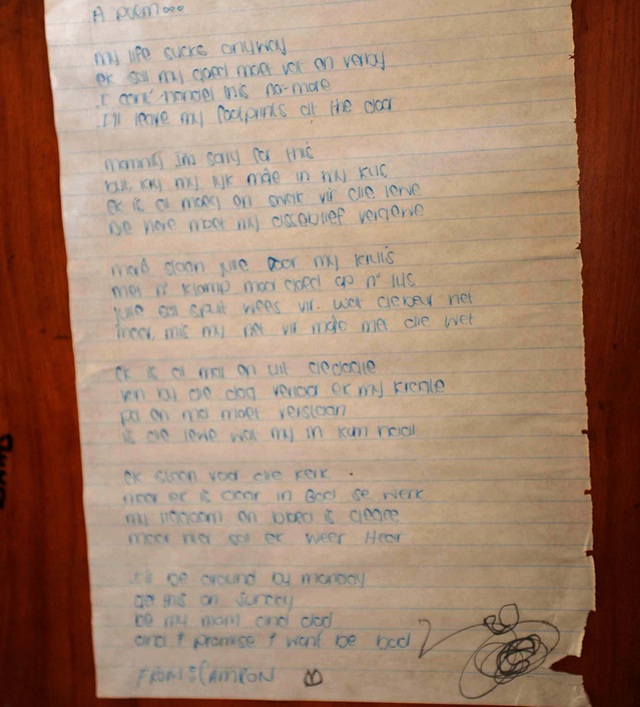 A poem...
my life sucks anyway
ek sal my goed moet vat en verby
I cant' handel this no-more
I'll leave my footprints at the door
mammy Im sorry for this
but, kry my lyk môre in my kus
ek is al moeg en swak vir die lewe
De here moet my asseblief vergewe
more staan julle voor my kruis
met n' klomp moor goed op n' lus
julle sal spyt wees vir wat gebeur het
maar mis my net vir môre met die wet
ek is al moi en uit
en by die dag verloor ek my kragte
pa en ma moet verstaan
is die lewe wat my in kom haal
ek staan voor die kerk
maar ek is daar in God se werk
my liggaam en bloed is
maar hier sal ek weer Heer
I'll be around by monday
do this on sunday
be my mom and dad
and I promise I wont be bad
FROM: CAMRON